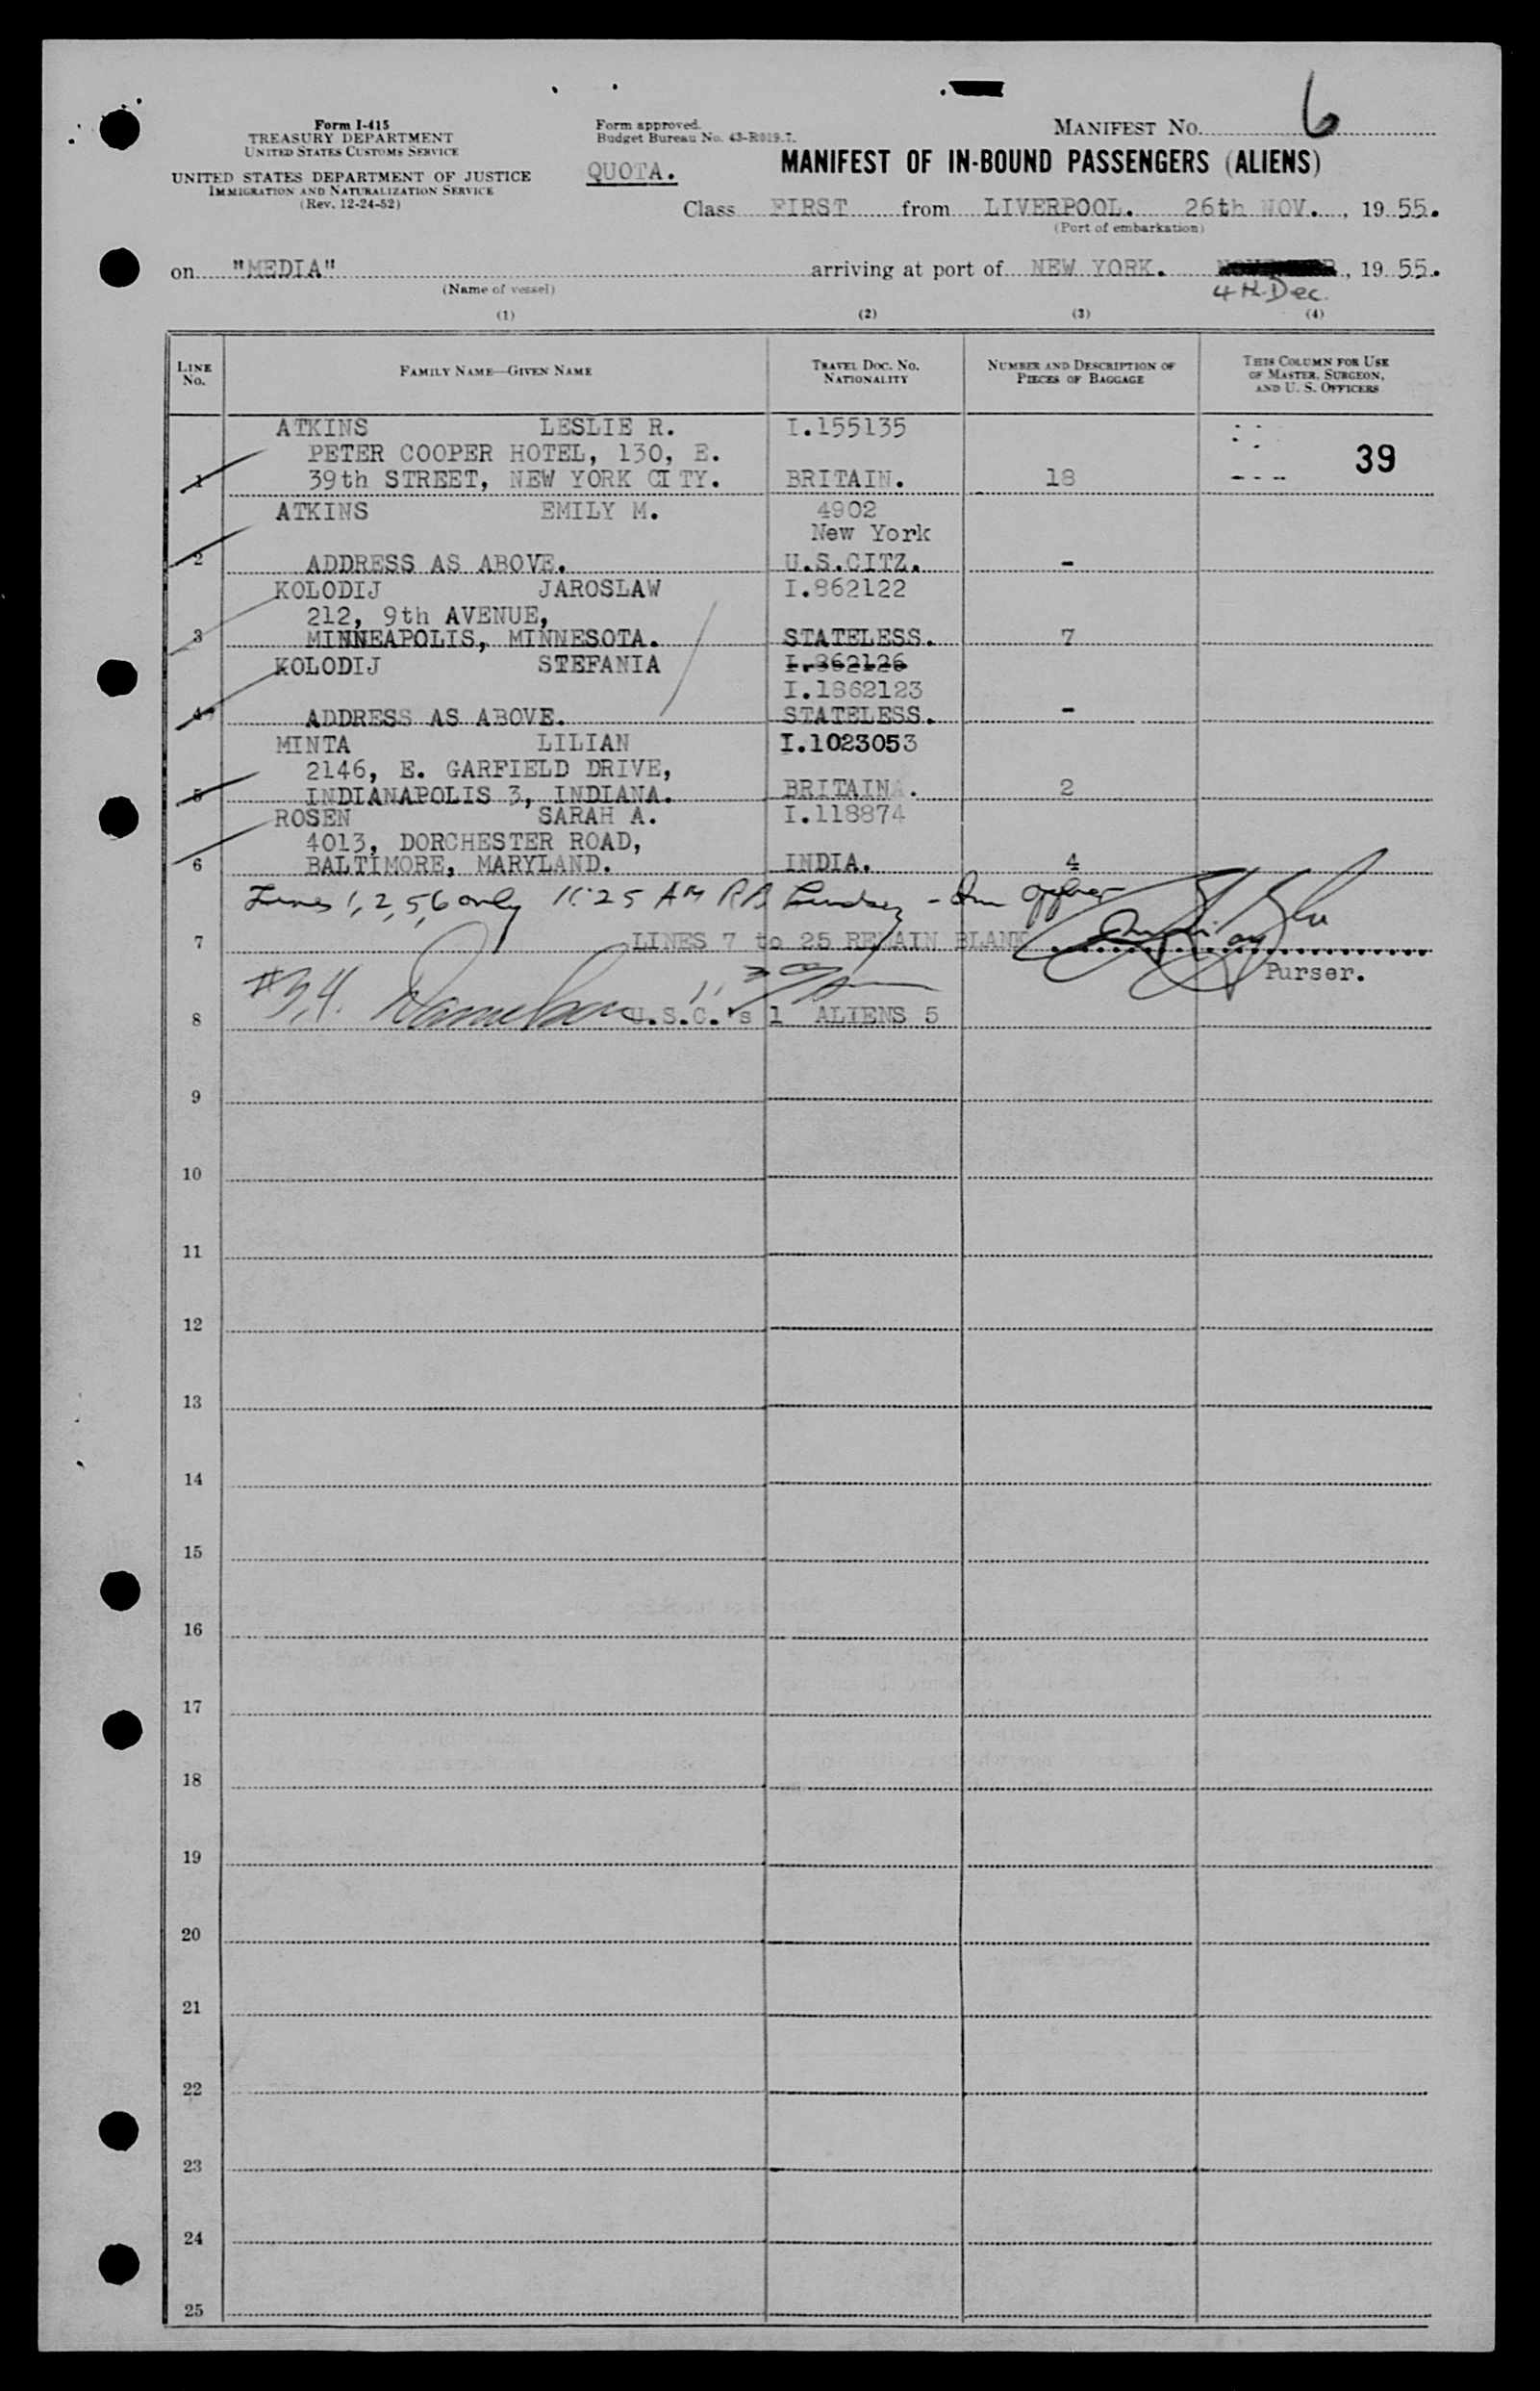 Form I-415
TREASURY DEPARTMENT
UNITED STATES CUSTOMS SERVICE
UNITED STATES DEPARTMENT OF JUSTICE
IMMIGRATION AND NATURALIZATION SERVICE
(Rev. 12-24-52)
Form approved.
Budget Bureau No. 43-R019.7.
QUOTA.
MANIFEST NO. 6
MANIFEST OF IN-BOUND PASSENGERS (ALIENS)
Class FIRST from LIVERPOOL. 26th NOV., 1955.
(Port of embarkation)
on "MEDIA" arriving at port of NEW YORK. , 1955.
(Name of vessel)
4th Dec.
(1) (2) (3) (4)
LINE No. FAMILY NAME—GIVEN NAME TRAVEL DOC. NO. NATIONALITY NUMBER AND DESCRIPTION OF PIECES OF BAGGAGE THIS COLUMN FOR USE OF MASTER, SURGEON, AND U. S. OFFICERS
ATKINS LESLIE R. I.155135
PETER COOPER HOTEL, 130, E. 39
1 39th STREET, NEW YORK CITY. BRITAIN. 18
ATKINS EMILY M. 4902
New York
2 ADDRESS AS ABOVE. U.S.CITZ. -
KOLODIJ JAROSLAW I.862122
212, 9th AVENUE,
3 MINNEAPOLIS, MINNESOTA. STATELESS. 7
KOLODIJ STEFANIA I.862126
I.1862123
4 ADDRESS AS ABOVE. STATELESS. -
MINTA LILIAN I.1023053
2146, E. GARFIELD DRIVE,
5 INDIANAPOLIS 3, INDIANA. BRITAIN. 2
ROSEN SARAH A. I.118874
4013, DORCHESTER ROAD,
6 BALTIMORE, MARYLAND. INDIA. 4
Lines 1, 2, 5, 6 only 11:25 AM R B Lindsey - Imm Officer
7 LINES 7 to 25 REMAIN BLANK
Purser.
#3,4.
8 U.S.C.'s 1 ALIENS 5
9
10
11
12
13
14
15
16
17
18
19
20
21
22
23
24
25